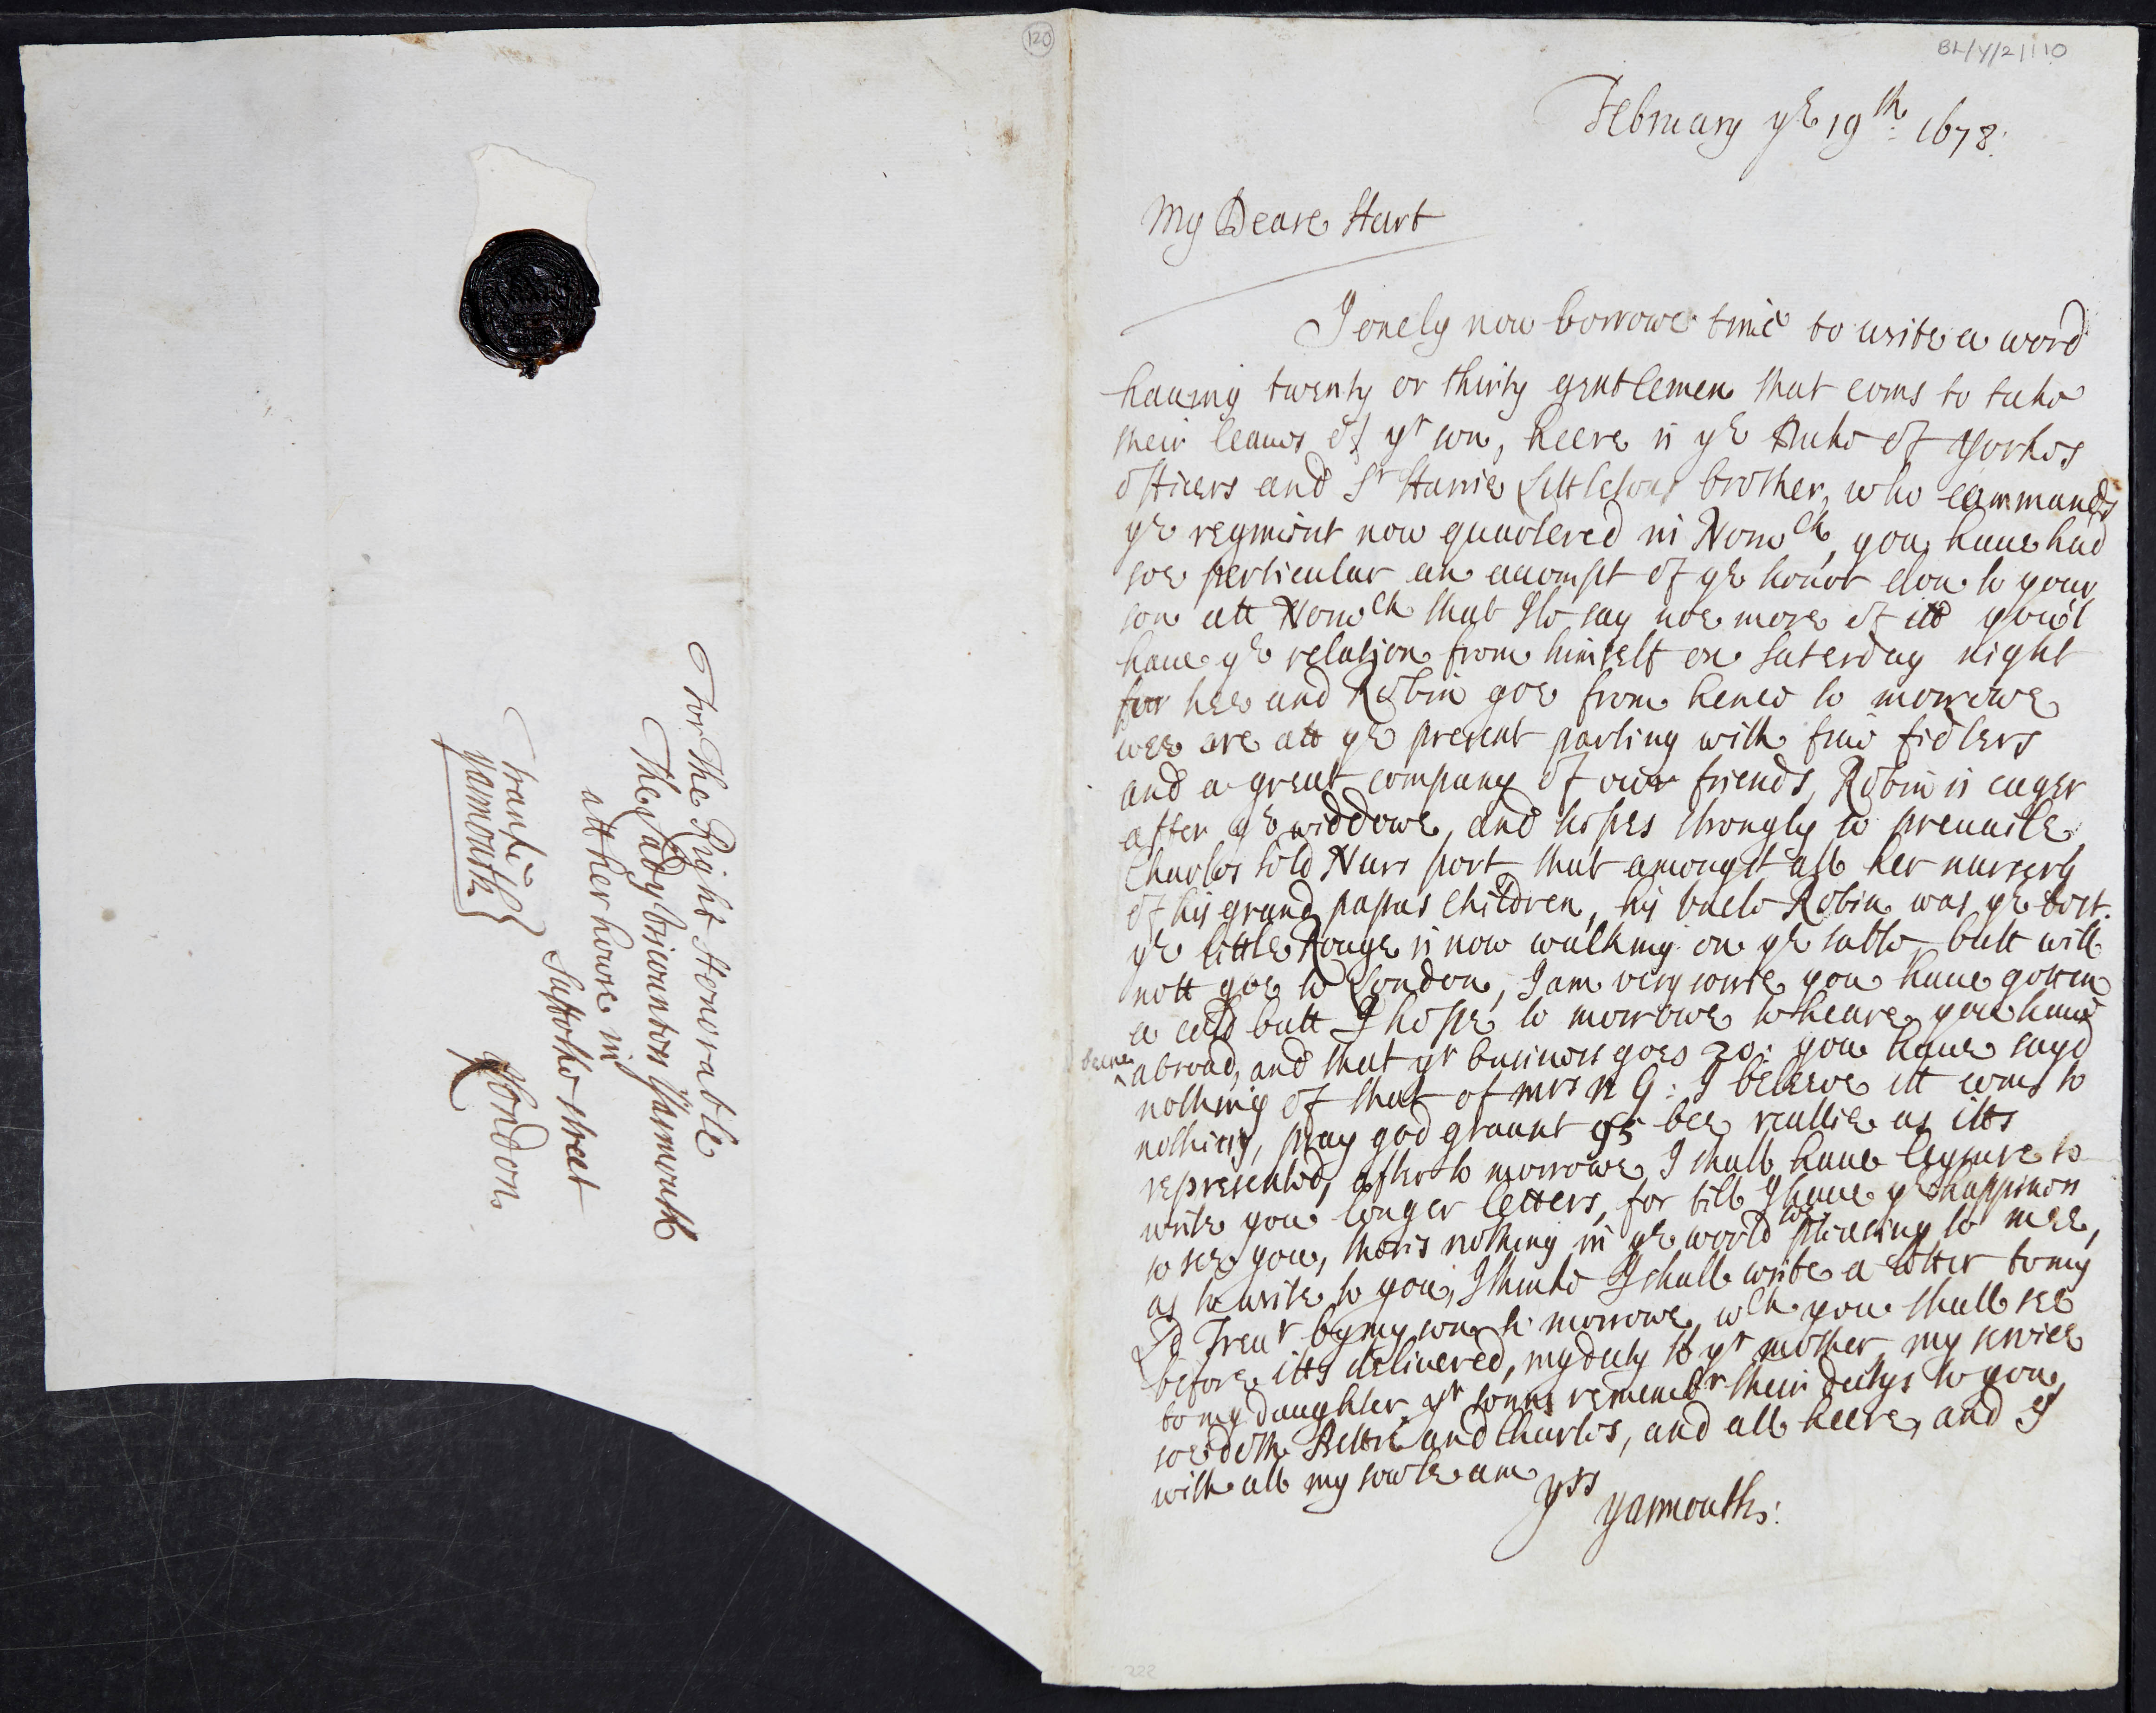 120
BL/Y/2/110
February ye 19th: 1678:
My Deare Hart
I onely now borrowe time to write a word
hauing twenty or thirty gentlemen that coms to take
their leaues of yr son, heere is ye Duke of Yorkes
officers and Sr Harrie Littletons brother, who commands
ye regment now quartered in Norwch, you haue had
soe perticular an accompt of ye honor don to your
son att Norwch that Ile say noe more of itt you'l
haue ye relation from himself on Saterday night
for hee and Robin goe from hence to morrowe
wee are att ye present parting with fiue fidlers
and a great company of our friends, Robin is eager
after ye widdowe, and hopes strongly to preuaile,
Charles told Nurs port that amongst all her nursery
of his grand papas children, his vncle Robin was ye best.
ye little Rouge is now walking on ye table, butt will
nott goe to London, I am very sorrie you haue gotten
a cold butt I hope to morrowe to heare you haue
beene abroad, and that yr business goes 20: you haue sayd
nothing of that of mrs n G: I beleeve itt coms to
nothing, pray god graunt 95 bee reallie as itts
represented, after to morrowe I shall haue leysure to
write you longer letters, for till I haue ye happiness
to see you, theris nothing in ye world soe pleasing to mee,
as to write to you, I thinke I shall write a letter to my
Ld Trear by my son to morrowe wch you shall see
before itts deliuered, my duty to yr mother my seruice
to my daughter, yr sonns remembr their dutys to you
soe doth Bettie and Charles, and all heere, and I
with all my sowle am
yrs
Yarmouth:
For The Right Honorable
The Lady viscountess Yarmouth
att her howse in
Suffolke street
London
franke
Yarmouth
222